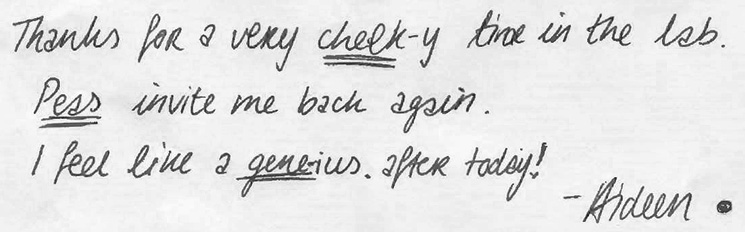 Thanks for a very cheek-y time in the lab.
Peas invite me back again.
I feel like a gene-ius. after today!
- Aideen